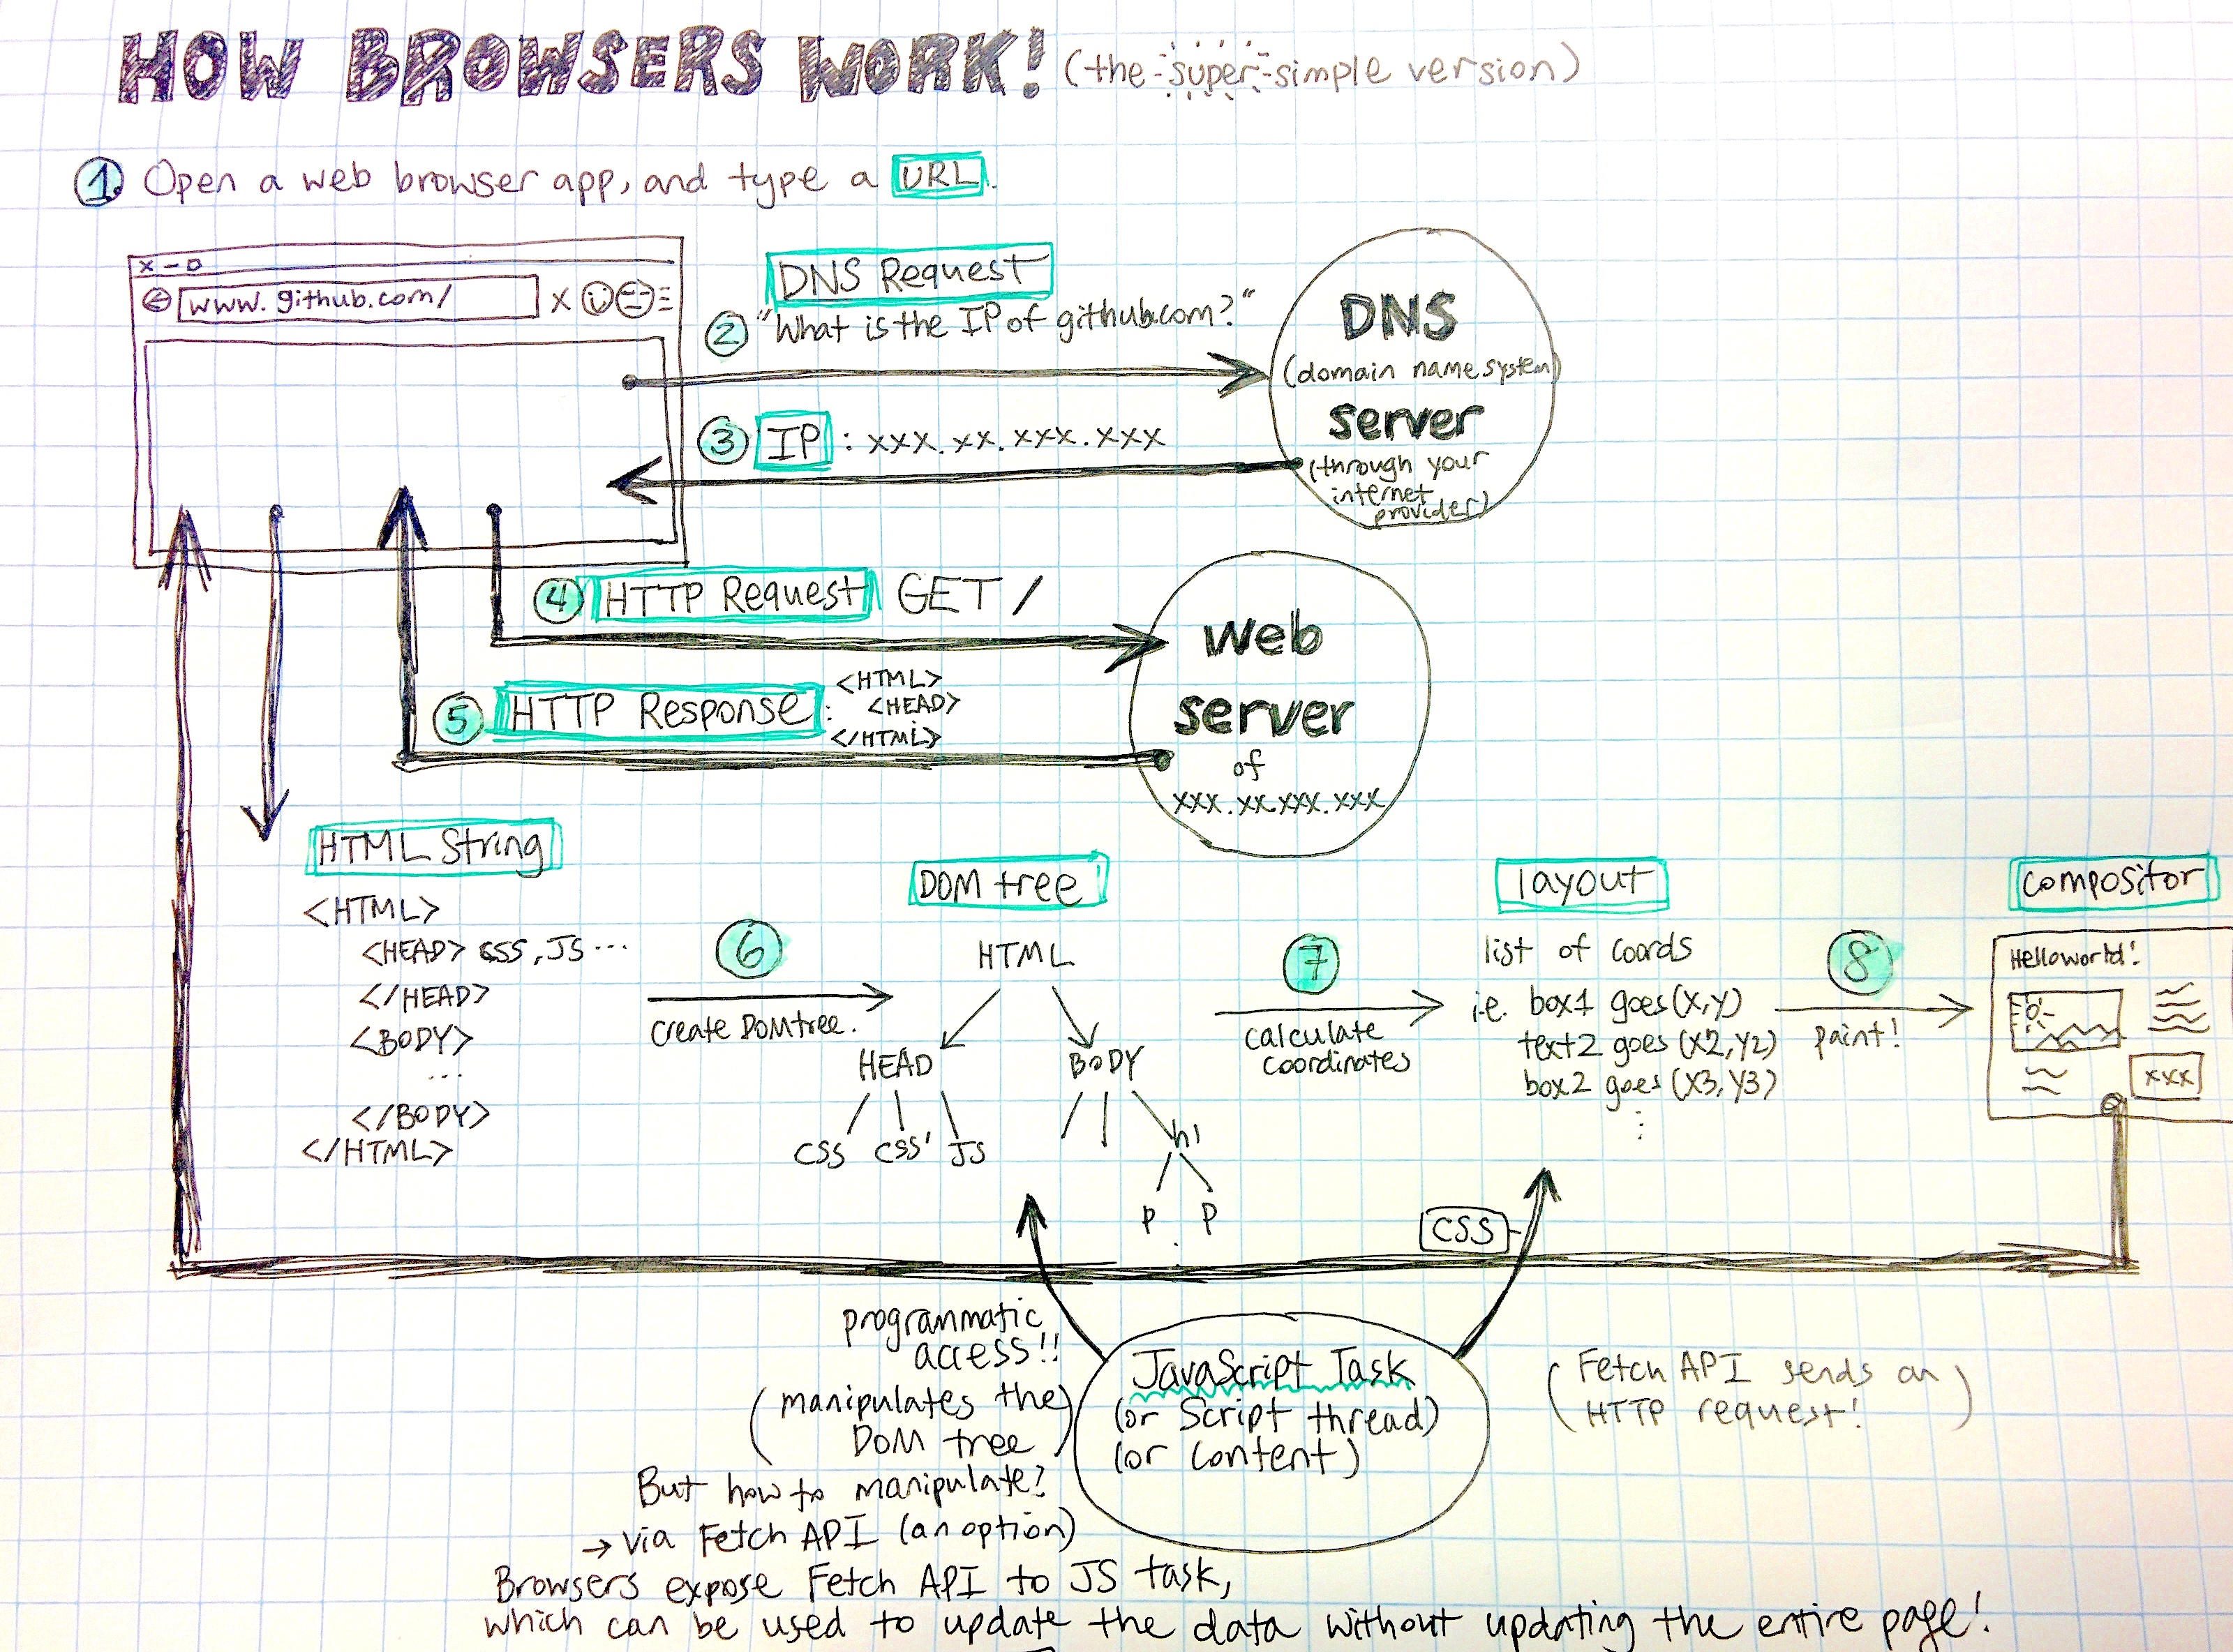 HOW BROWSERS WORK! (the super-simple version)
1. Open a web browser app, and type a URL.
x - o
www.github.com/ X
DNS Request
2 "What is the IP of github.com?"
DNS
(domain name system)
server
(through your
internet
provider)
3 IP : xxx.xx.xxx.xxx
4 HTTP Request GET /
web
server
of
xxx.xx.xxx.xxx
5 HTTP Response :
<HTML>
<HEAD>
</HTML>
HTML String
<HTML>
<HEAD> CSS, JS ...
</HEAD>
<BODY>
...
</BODY>
</HTML>
6
create DOM tree.
DOM tree
HTML
HEAD BODY
CSS CSS' JS
h1
P P
7
calculate
coordinates
layout
list of coords
i.e. box1 goes (x,y)
text2 goes (x2,y2)
box2 goes (x3,y3)
8
paint!
compositor
Helloworld!
xxx
CSS
programmatic
access!!
(manipulates the
DOM tree)
But how to manipulate?
→ via Fetch API (an option)
JavaScript Task
(or Script thread)
(or Content)
(Fetch API sends an
HTTP request!)
Browsers expose Fetch API to JS task,
which can be used to update the data without updating the entire page!